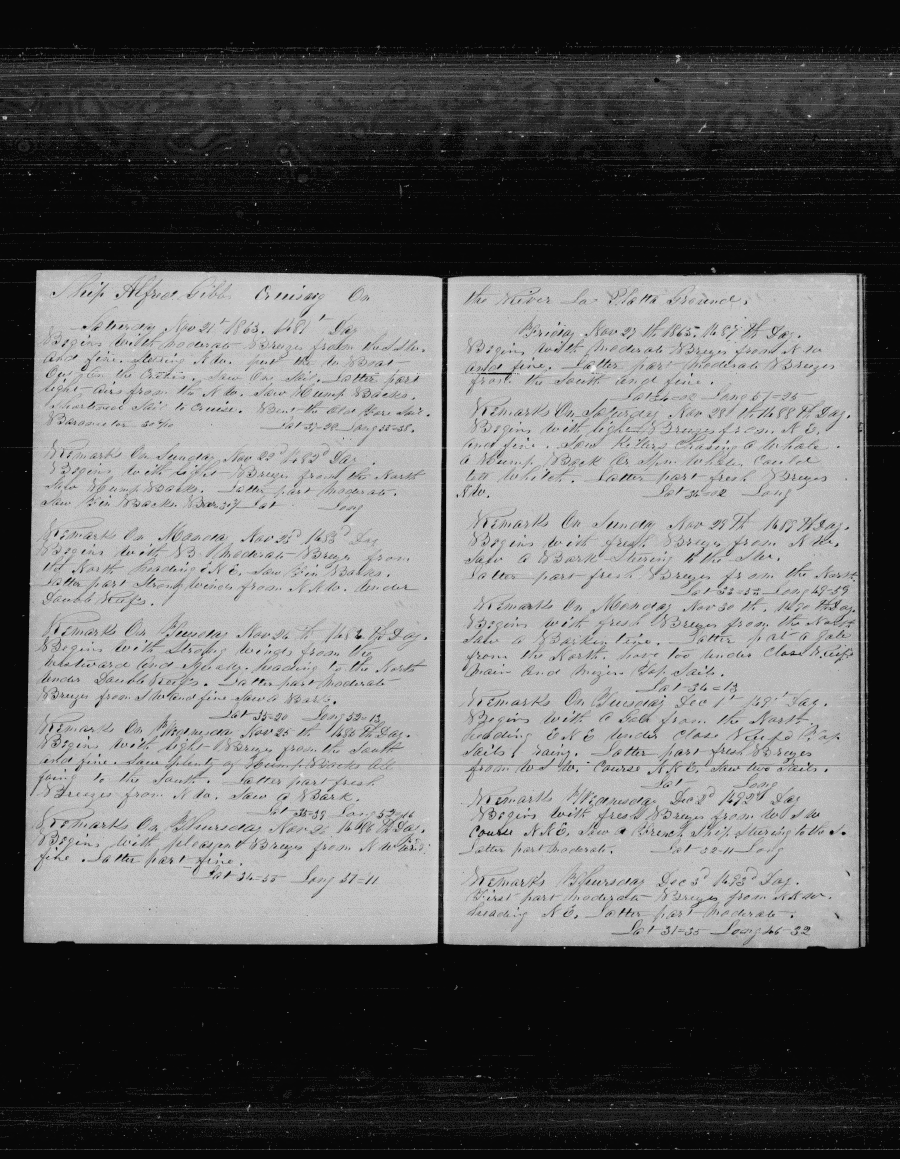 Ship Alfred Gibbs Cruising On
Saturday Nov 21st 1863. 1481st Day
Begins with moderate Breezes from the S.W.
and fine. Latter part
light airs from the N.W. Saw Hump Backs.
Shortened Sail to Cruise. Bent the Old Fore Sail.
Barometer 30
Remarks On Sunday Nov 22d 1482d Day
Begins with light Breezes from the North
Saw Hump Backs. Latter part moderate.
Saw Fin Backs. Lat Long
Remarks On Monday Nov 23d 1483d Day
Begins with moderate Breezes from
the North heading E.N.E. Saw Fin Backs.
Latter part Strong winds from N.N.W. Under
Double Reefs.
Remarks On Tuesday Nov 24th Day.
Begins with Strong winds from the
Westward and heading to the North
Under Double Reefs. Latter part moderate
Breezes from S.W and fine Saw a Bark.
Lat 35=20 Long 52=13
Remarks On Wednesday Nov 25th Day.
Begins with light Breezes from the South
and fine. Saw plenty of Hump Backs all
going to the South. Latter part fresh
Breezes from N.W. Saw a Bark.
Lat 35=39 Long
Remarks On Thursday Nov 26 Day.
Begins with pleasant Breezes from N.W
fine. Latter part fine.
Lat 34=55 Long 51=11
the River La Platta Ground.
Friday Nov 27th 1487th Day.
Begins with moderate Breezes from N.W
and fine. Latter part moderate Breezes
from the South and fine.
Long 51=25
Remarks On Saturday Nov 28th 1488th Day.
Begins with light Breezes from N.E.
and fine. Saw Killers Chasing a Whale.
a Hump Back Or Spm Whale Could
tell Which. Latter part fresh Breezes
N.W. Lat 34=02 Long
Remarks On Sunday Nov 29th 1489th Day.
Begins with fresh Breezes from
Saw a Bark Steering to the S.W.
Latter part fresh Breezes from the North.
Long 49=59
Remarks On Monday Nov 30th. 1490th Day
Begins with fresh Breezes from the North
Saw a Barkentine. Latter part a Gale
from the North. hove too under Close Reefd
Main and Mizen Top Sails.
Lat 34=13
Remarks On Tuesday Dec 1st 1491st Day.
Begins with a Gale from the North
heading E.N.E under Close Reefd Top
Sails. Latter part fresh Breezes
from W.S.W. Course N.N.E. Saw two Sails.
Lat Long
Remarks Wednesday Dec 2d 1492d Day
Begins with fresh Breezes from W.S.W
Course N.N.E. Saw a French Ship Steering to the S.
Latter part moderate. Lat 32=11 Long
Remarks Thursday Dec 3d 1493d Day.
First part moderate Breezes from N.N.W.
heading N.E. Latter part moderate.
Lat 31=35 Long 46=32